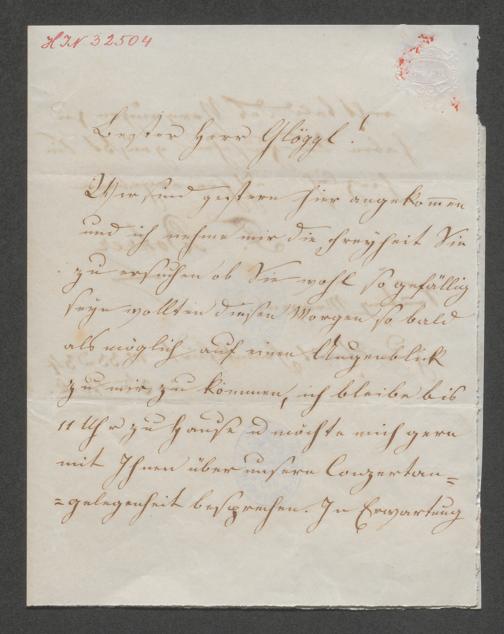 HIN 32504
Bester Herr Glöggl!
Wir sind gestern hier angekommen
und ich nehme mir die Freyheit Sie
zu ersuchen ob Sie wohl so gefällig
seyn wollten diesen Morgen so bald
als möglich auf einen Augenblick
zu mir zu kommen, ich bleibe bis
11 Uhr zu Hause u möchte mich gern
mit Ihnen über unsere Conzertan=
=gelegenheit besprechen. In Erwartung